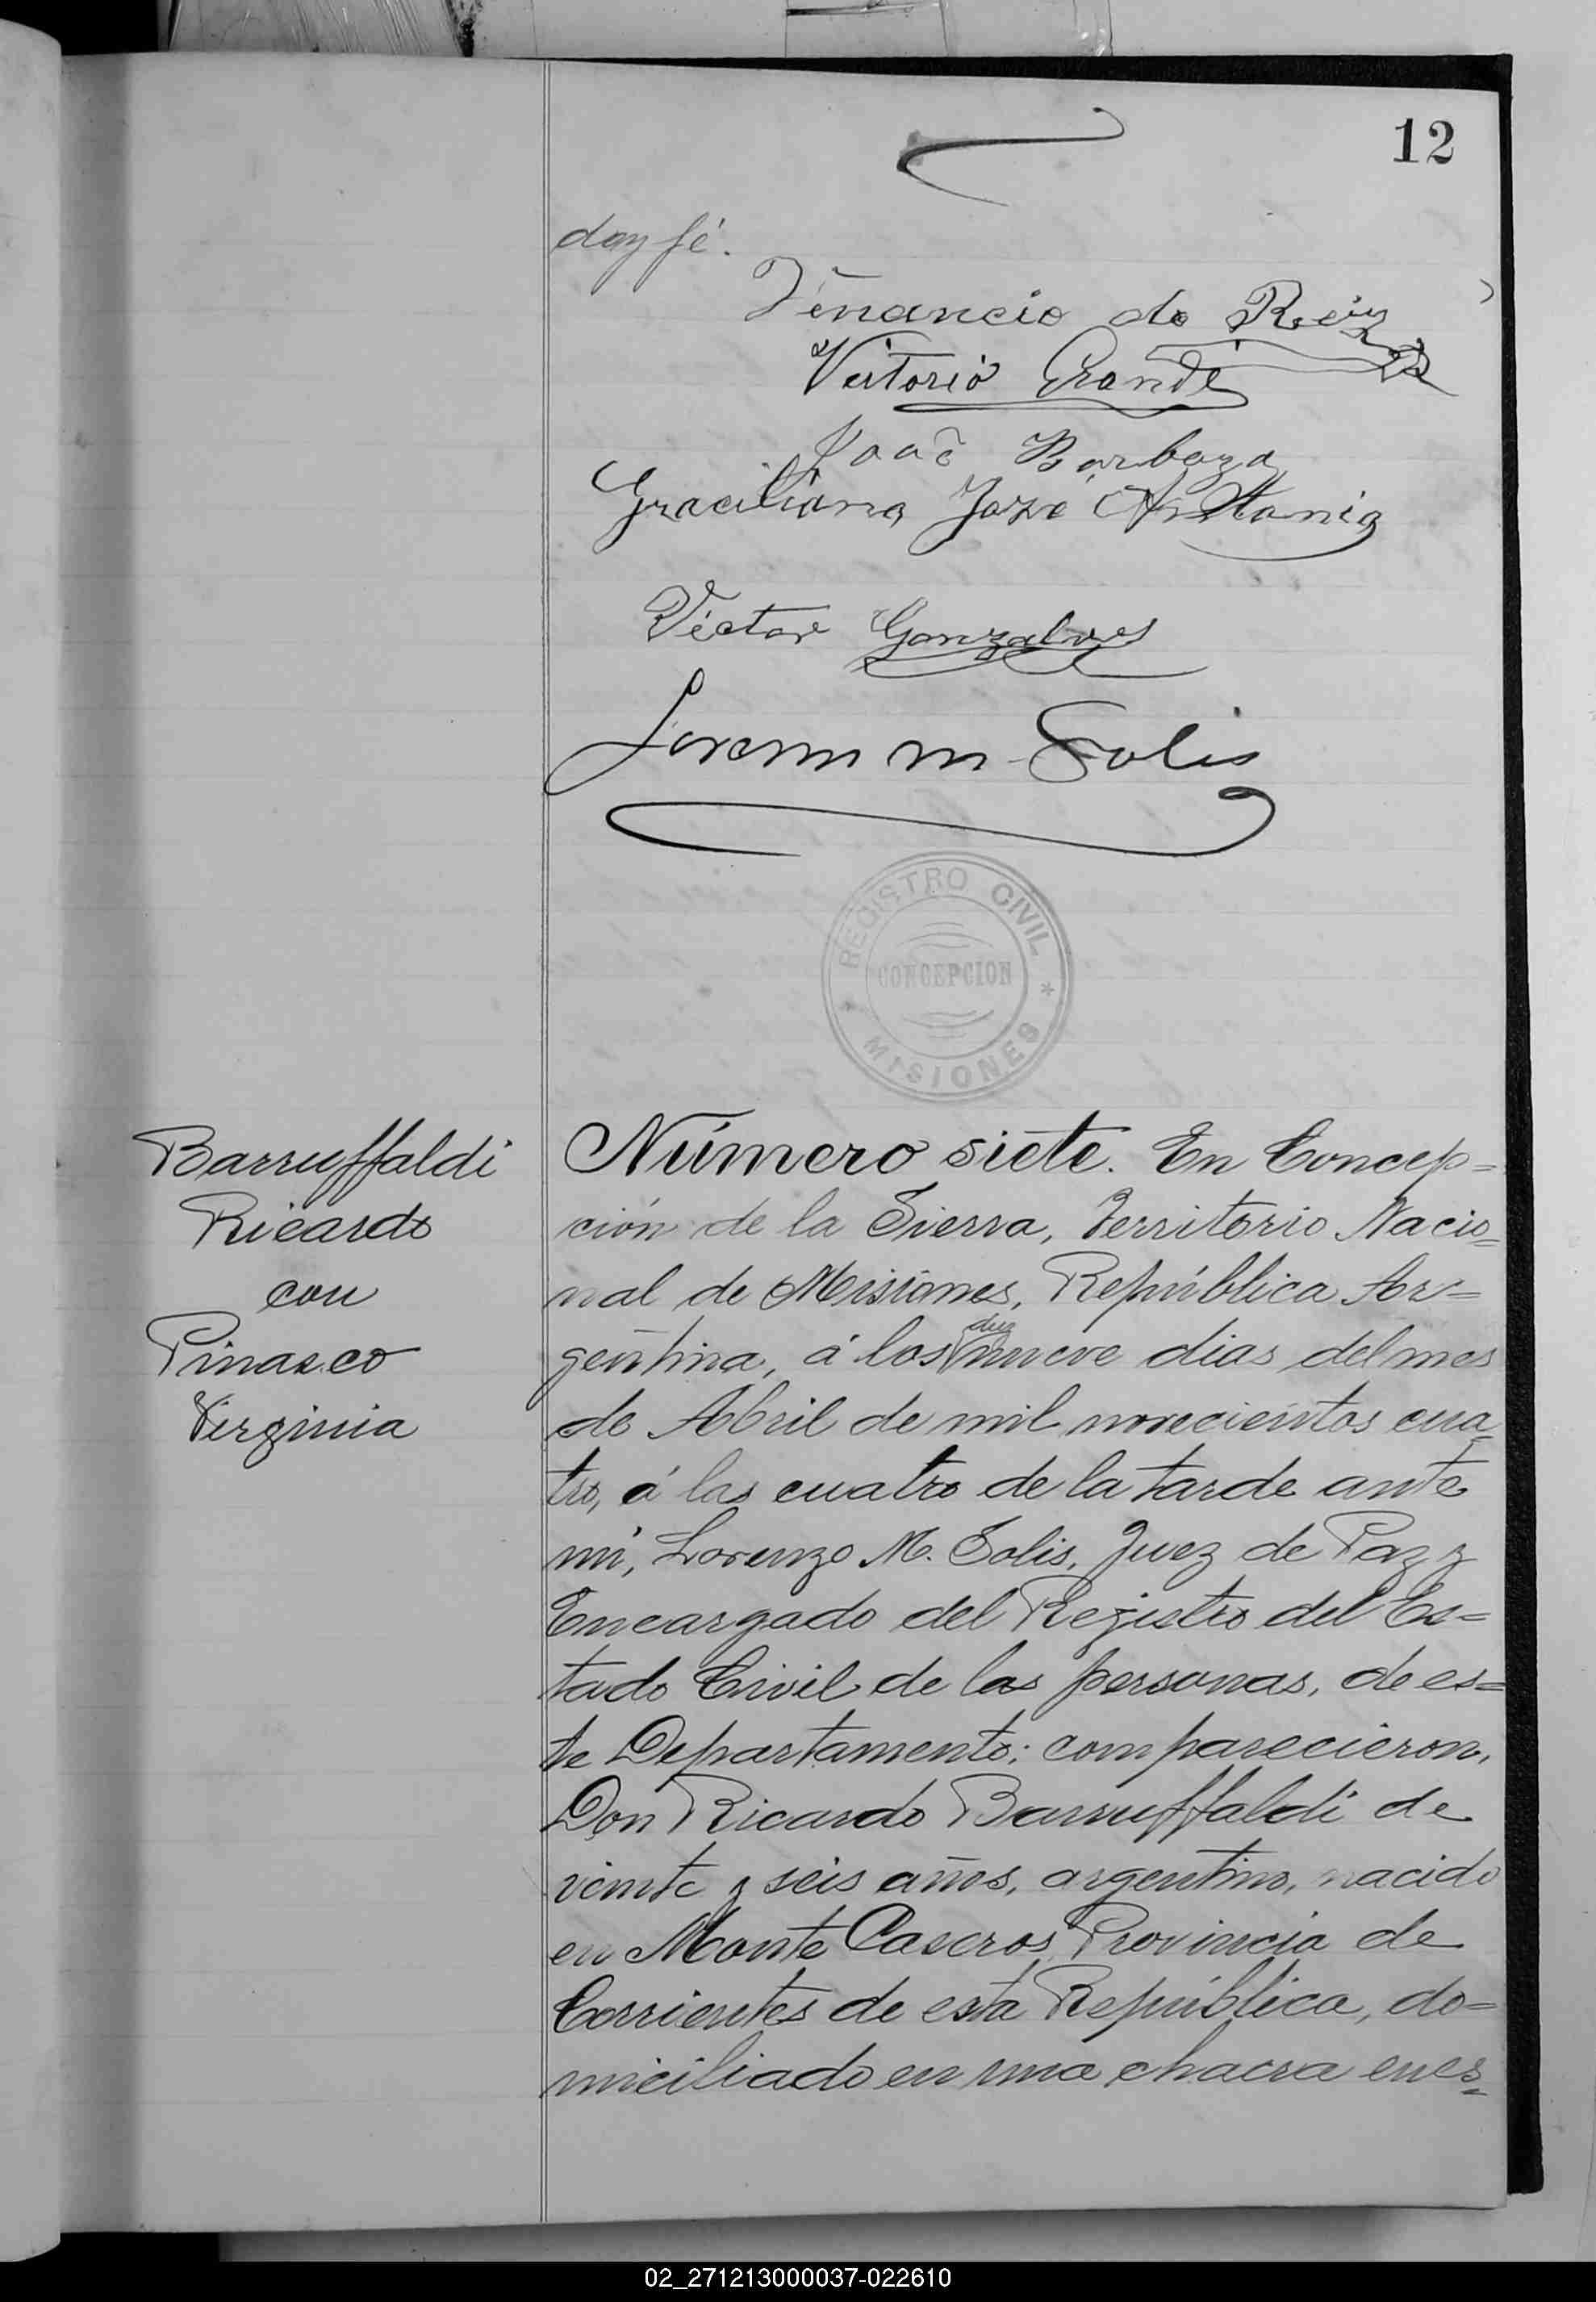 12
doy fé.
Venancio do Reis
Vitorio Grande
Joaõ Barboza
Graciliana Joze Antonia
Victor Gonzalves
Lorenzo M Solis
REGISTRO CIVIL
CONCEPCION
MISIONES
Barruffaldi
Ricardo
con
Pinasco
Virginia
Número siete. En Concep=
ción de la Sierra, Territorio Nacio=
nal de Misiones, República Ar=
gentina, á los diez nueve dias del mes
de Abril de mil novecientos cua=
tro, á las cuatro de la tarde ante
mi, Lorenzo M. Solis, Juez de Paz y
Encargado del Rejistro del Es=
tado Civil de las personas, de es=
te Departamento; comparecieron,
Don Ricardo Barruffaldi de
veinte y seis años, argentino, nacido
en Monte Caseros, Provincia de
Corrientes de esta República, do=
miciliado en una chacra en es=
02_271213000037-022610